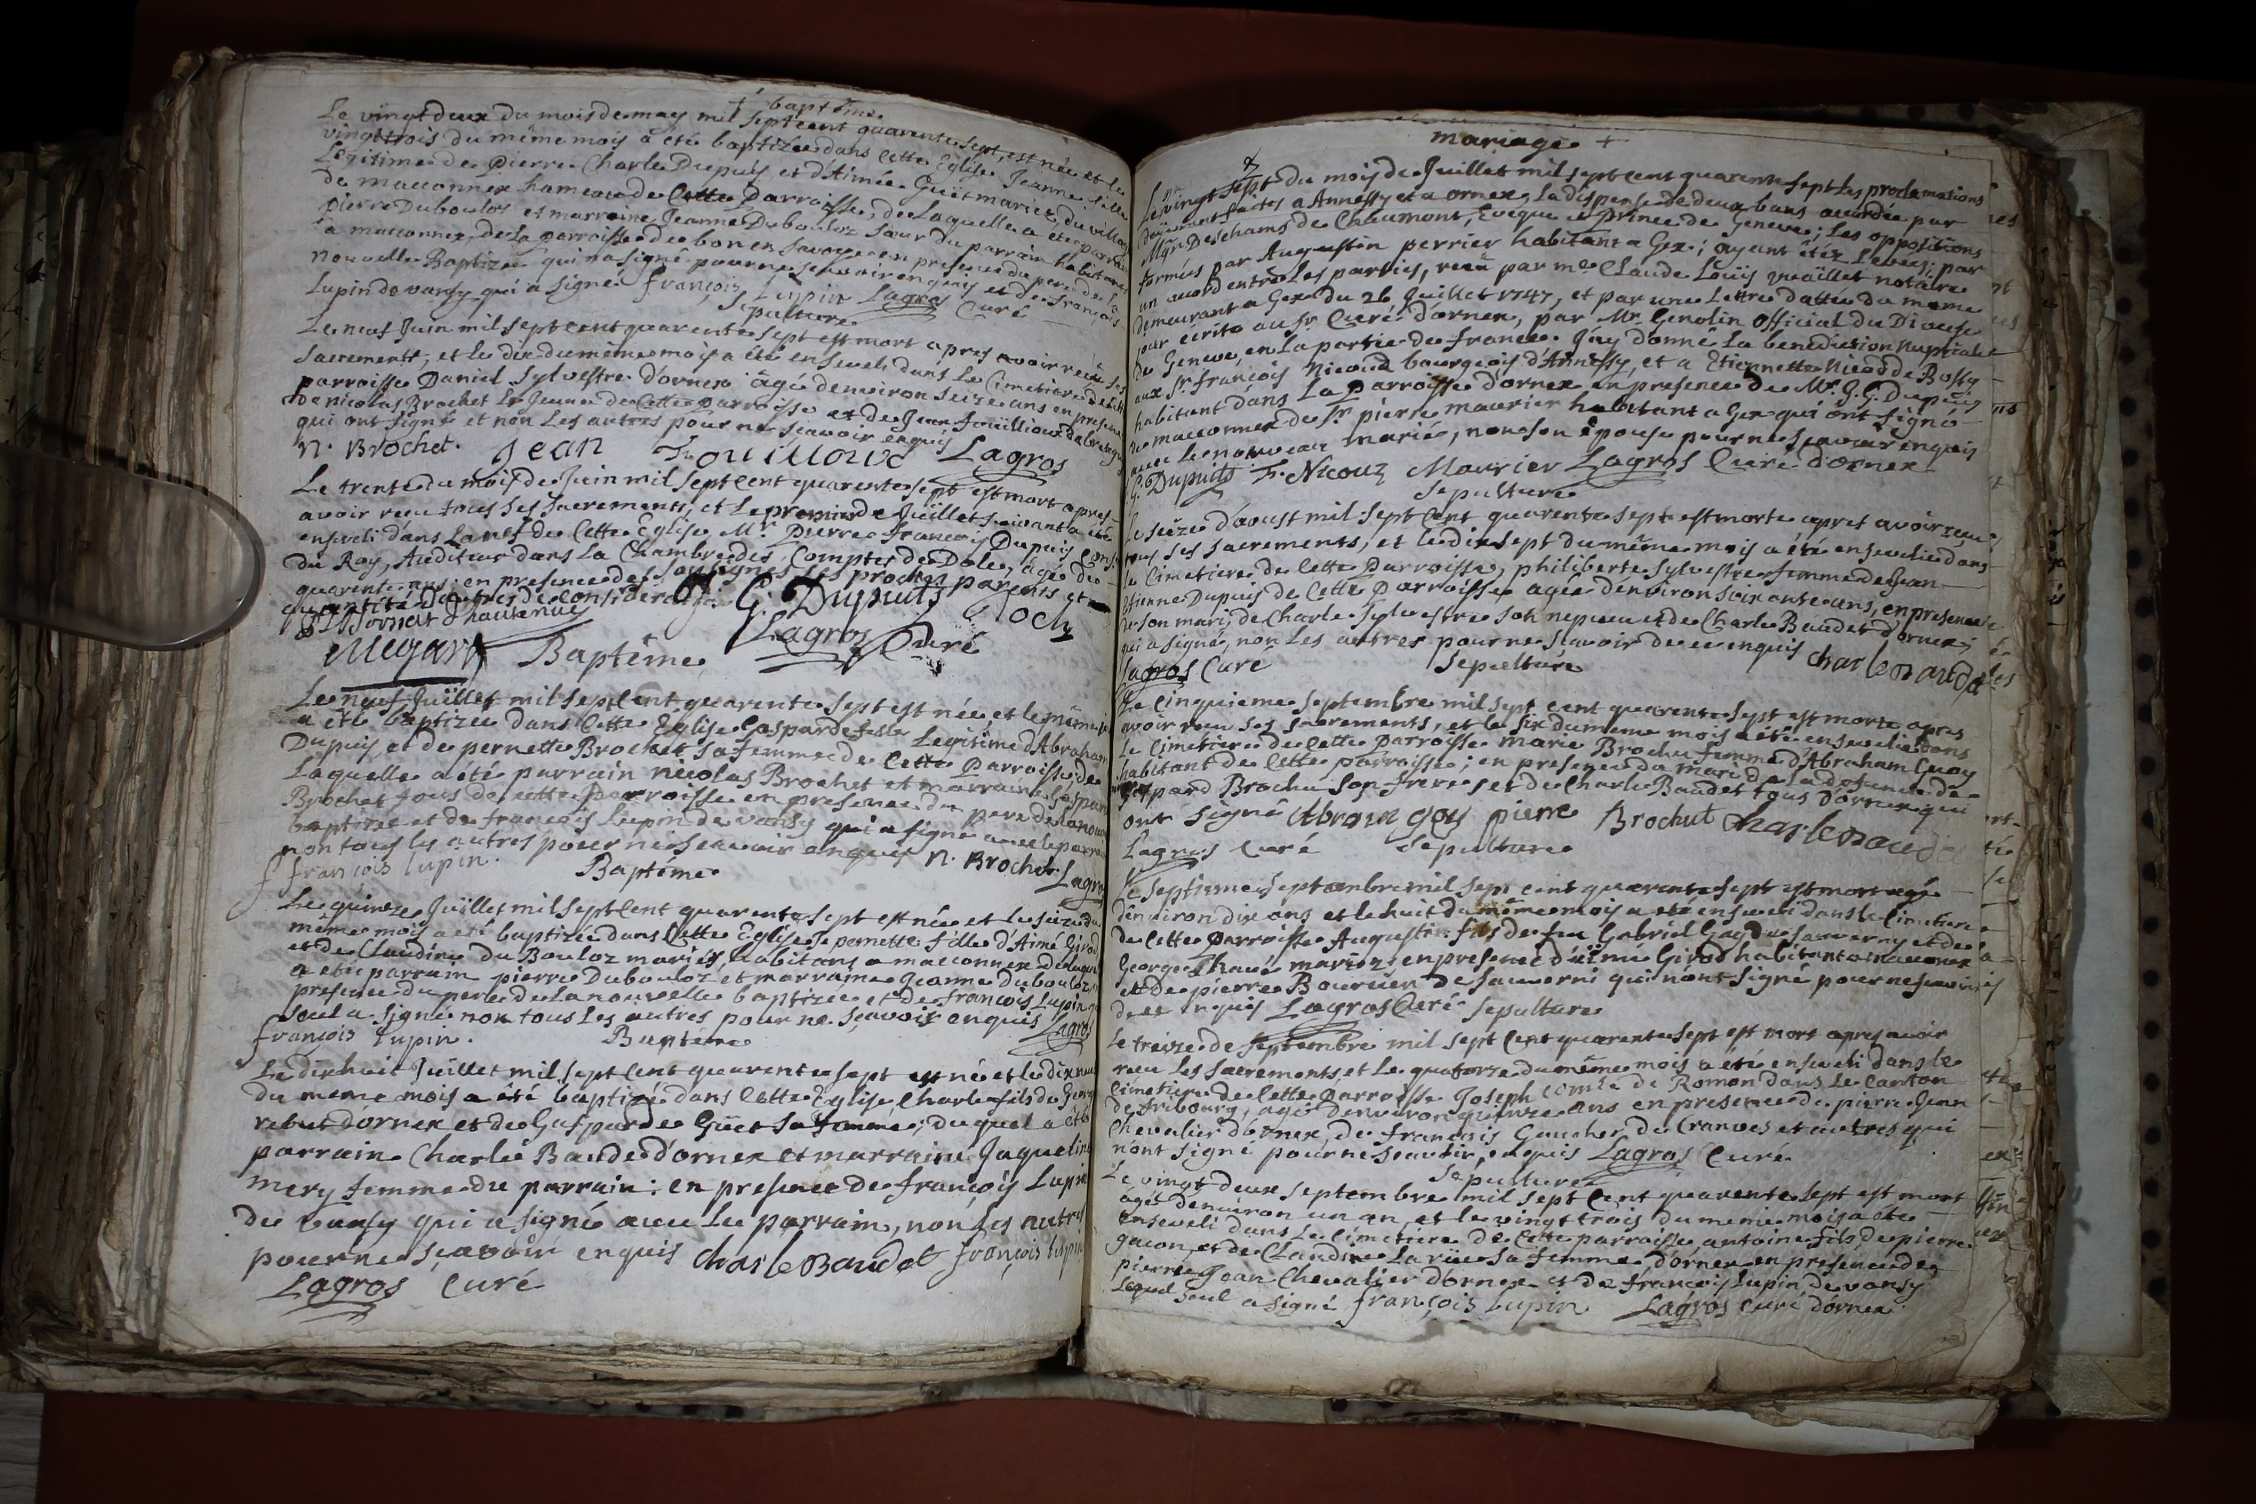 + baptême
Le vingt deux du mois de may mil sept cent quarente sept, est née et le
vingt trois du même mois a été baptizée dans cette Eglise Jeanne fille
Legitime de Pierre Charle Dupuis et d'Aimée Guït mariez, du village
de maconnex hameau de Cette Parroisse, de Laquelle a été parrain
pierre Duboulos et marraine Jeanne Dubouloz sœur du parrain habitans
a maconnex, de la parroisse de bon en savoye en presence du pere de la
nouvelle Baptizée qui n'a signé pour ne sçavoir enquis et de françois
Lupin de vansy qui a signé françois Lupin Lagros Curé
Sepulture
Le neuf Juin mil sept cent quarente sept est mort apres avoir reçu ses
sacrements, et le dix du même mois a été enseveli dans le Cimetiere de cette
parroisse Daniel Sylvestre d'ornex âgé d'environ seize ans en presence
de nicolas Brochet le jeune de Cette Parroisse et de Jean fouilloux de
qui ont signé et non Les autres pour ne sçavoir enquis
n. Brochet. Jean Fouilloux Lagros
Le trente du mois de Juin mil sept cent quarente sept est mort apres
avoir reçu tous ses sacrements, et le premier de Juillet suivant a été
enseveli dans La nef de Cette Eglise Mr. Pierre François Dupuis Cons.
du Roy, Auditeur dans la Chambre des Comptes de Dole, âgé de
quarente ans: en presence des soussignés ses proches parents et
quantité d'autres de consideration G. Dupuits
Lagros Curé
Baptême
Le neuf Juillet mil sept cent quarente sept est née et le même
a été baptizée dans Cette Eglise Gasparde fille Legitime d'Abraham
Dupuis et de pernette Brochet sa femme de Cette Parroisse de
Laquelle a été parrain nicolas Brochet et marraine Gasparde
Brochet tous de cette Parroisse en presence du pere de la nouvelle
baptizée et de françois Lupin de vansy qui a signé avec le parrain
non tous les autres pour ne sçavoir enquis n. Brochet Lagros
françois lupin. Baptême
Le quinze Juillet mil sept cent quarente sept est née et le seize du
même mois a été baptizée dans Cette Eglise pernette fille d'Aimé Girod
et de Claudine du Bouloz mariés, habitans a maconnex de laquelle
a été parrain pierre Dubouloz et marraine Jeanne dubouloz, en
presence du pere de la nouvelle baptizée et de françois Lupin qui
seul a signé non tous Les autres pour ne sçavoir enquis Lagros
françois lupin. Baptême
Le dix huit Juillet mil sept cent quarente sept est né et le dix neuf
du meme mois a été baptizé dans Cette Eglise Charle fils de George
rebut d'ornex et de Gasparde Guët sa femme; du quel a été
parrain Charle Baudet d'ornex et marraine Jaqueline
mery femme du parrain: en presence de françois Lupin
de vansy qui a signé avec le parrain, non Les autres
pour ne sçavoir enquis Charle Baudet françois lupin
Lagros Curé
mariage +
Le vingt sept du mois de Juillet mil sept cent quarente sept les proclamations
deuement faites a Annessy et a ornex, la dispense de deux bans accordée par
Mgr Deschams de Chaumont, Eveque et Prince de Geneve; les oppositions
formées par Augustin perrier habitant a Gex; ayant étéz levées par
un acord entre les parties, reçu par me Claude Louïs quaillet notaire
demeurant a Gex du 26 Juillet 1747, et par une Lettre dattée du même
jour écrite au Sr Curé d'ornex, par Mr Genolin Official du Diocese
de Geneve, en La partie de france. J'ay donné la benediction Nuptiale
aux Sr. françois Nicoud bourgeois d'Annessy, et a Etiennette Nicod de Bossy
habitant dans la Parroisse d'ornex en presence de Mr. G. G. Dupuis
de maconnex de Sr pierre maurier habitant a Gex qui ont signé
avec le nouveau marié, non son épouse pour ne sçavoir enquis
G. Dupuits F. Nicouz Maurier Lagros Curé d'ornex
Sepulture
Le seize d'aoust mil sept Cent quarente sept est morte apres avoir reçu
tous ses sacrements, et le dix sept du même mois a été ensevelie dans
le Cimetiere de Cette Parroisse, philiberte Sylvestre femme de Jean
Etienne Dupuis de Cette Parroisse agée d'environ soixante ans, en presence
de son mari, de Charle Sylvestre son nepveu et de Charle Baudet d'ornex,
qui a signé, non Les autres pour ne sçavoir de ce enquis Charle Baudet
Lagros Curé Sepulture
Le Cinquieme septembre mil sept cent quarente sept est morte apres
avoir reçu ses sacrements, et le six du meme mois a été ensevelie dans
le Cimetiere de Cette Parroisse marie Brochu femme d'Abraham Cuay
habitant de Cette parroisse; en presence du mari de la defunte de
Gaspard Brochu son frere et de Charle Baudet tous d'ornex qui
ont signé Abram goy pierre Brochut Charle Baudet
Lagros Curé Sepulture
Le Septieme Septembre mil sept cent quarente sept est mort agé
d'environ dix ans et le huit du même mois a été enseveli dans le Cimetiere
de Cette Parroisse Augustin fils de feu Gabriel Gay de sauverny et de la
George Thaué mariez, en presence d'aimé Girod habitant a maconnex
et de pierre Bouruën de sauverni qui n'ont signé pour ne sçavoir
de ce enquis Lagros Curé Sepulture
Le treize de septembre mil sept Cent quarente sept est mort apres avoir
reçu les sacrements et le quatorze du même mois a été enseveli dans le
Cimetiere de Cette Parroisse Joseph Comte de Romon dans Le Canton
de fribourg, agé d'environ quinze ans en presence de pierre Jean
Chevalier d'ornex, de françois Goucher de Cranves et autres qui
n'ont signé pour ne sçavoir, enquis Lagros Curé
Sepulture
Le vingt deux septembre mil sept Cent quarente sept est mort
agé d'environ un an, et le vingt trois du meme mois a été
enseveli dans Le Cimetiere de Cette parroisse antoine fils de pierre
gacon et de Claudine La rüe sa femme d'ornex en presence de
pierre Jean Chevalier d'ornex et de françois Lupin de vansy
Lequel seul a signé françois Lupin Lagros Curé d'ornex